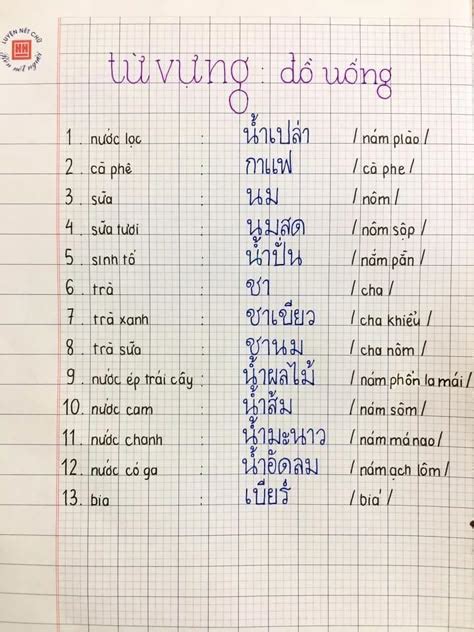 LUYỆN NÉT CHỮ
HH
Rèn nét người
từ vựng : đồ uống
1 . nước lọc : น้ำเปล่า / nám plào /
2 . cà phê : กาแฟ / cà phe /
3 . sữa : นม / nôm /
4 . sữa tươi : นมสด / nôm sột /
5 . sinh tố : น้ำปั่น / nắm pằn /
6 . trà : ชา / cha /
7 . trà xanh : ชาเขียว / cha khiểu /
8 . trà sữa : ชานม / cha nôm /
9 . nước ép trái cây : น้ำผลไม้ / nám phổn la mái /
10. nước cam : น้ำส้ม / nám sôm /
11. nước chanh : น้ำมะนาว / nám má nao /
12. nước có ga : น้ำอัดลม / nám ạch lôm /
13. bia : เบียร์ / bia /